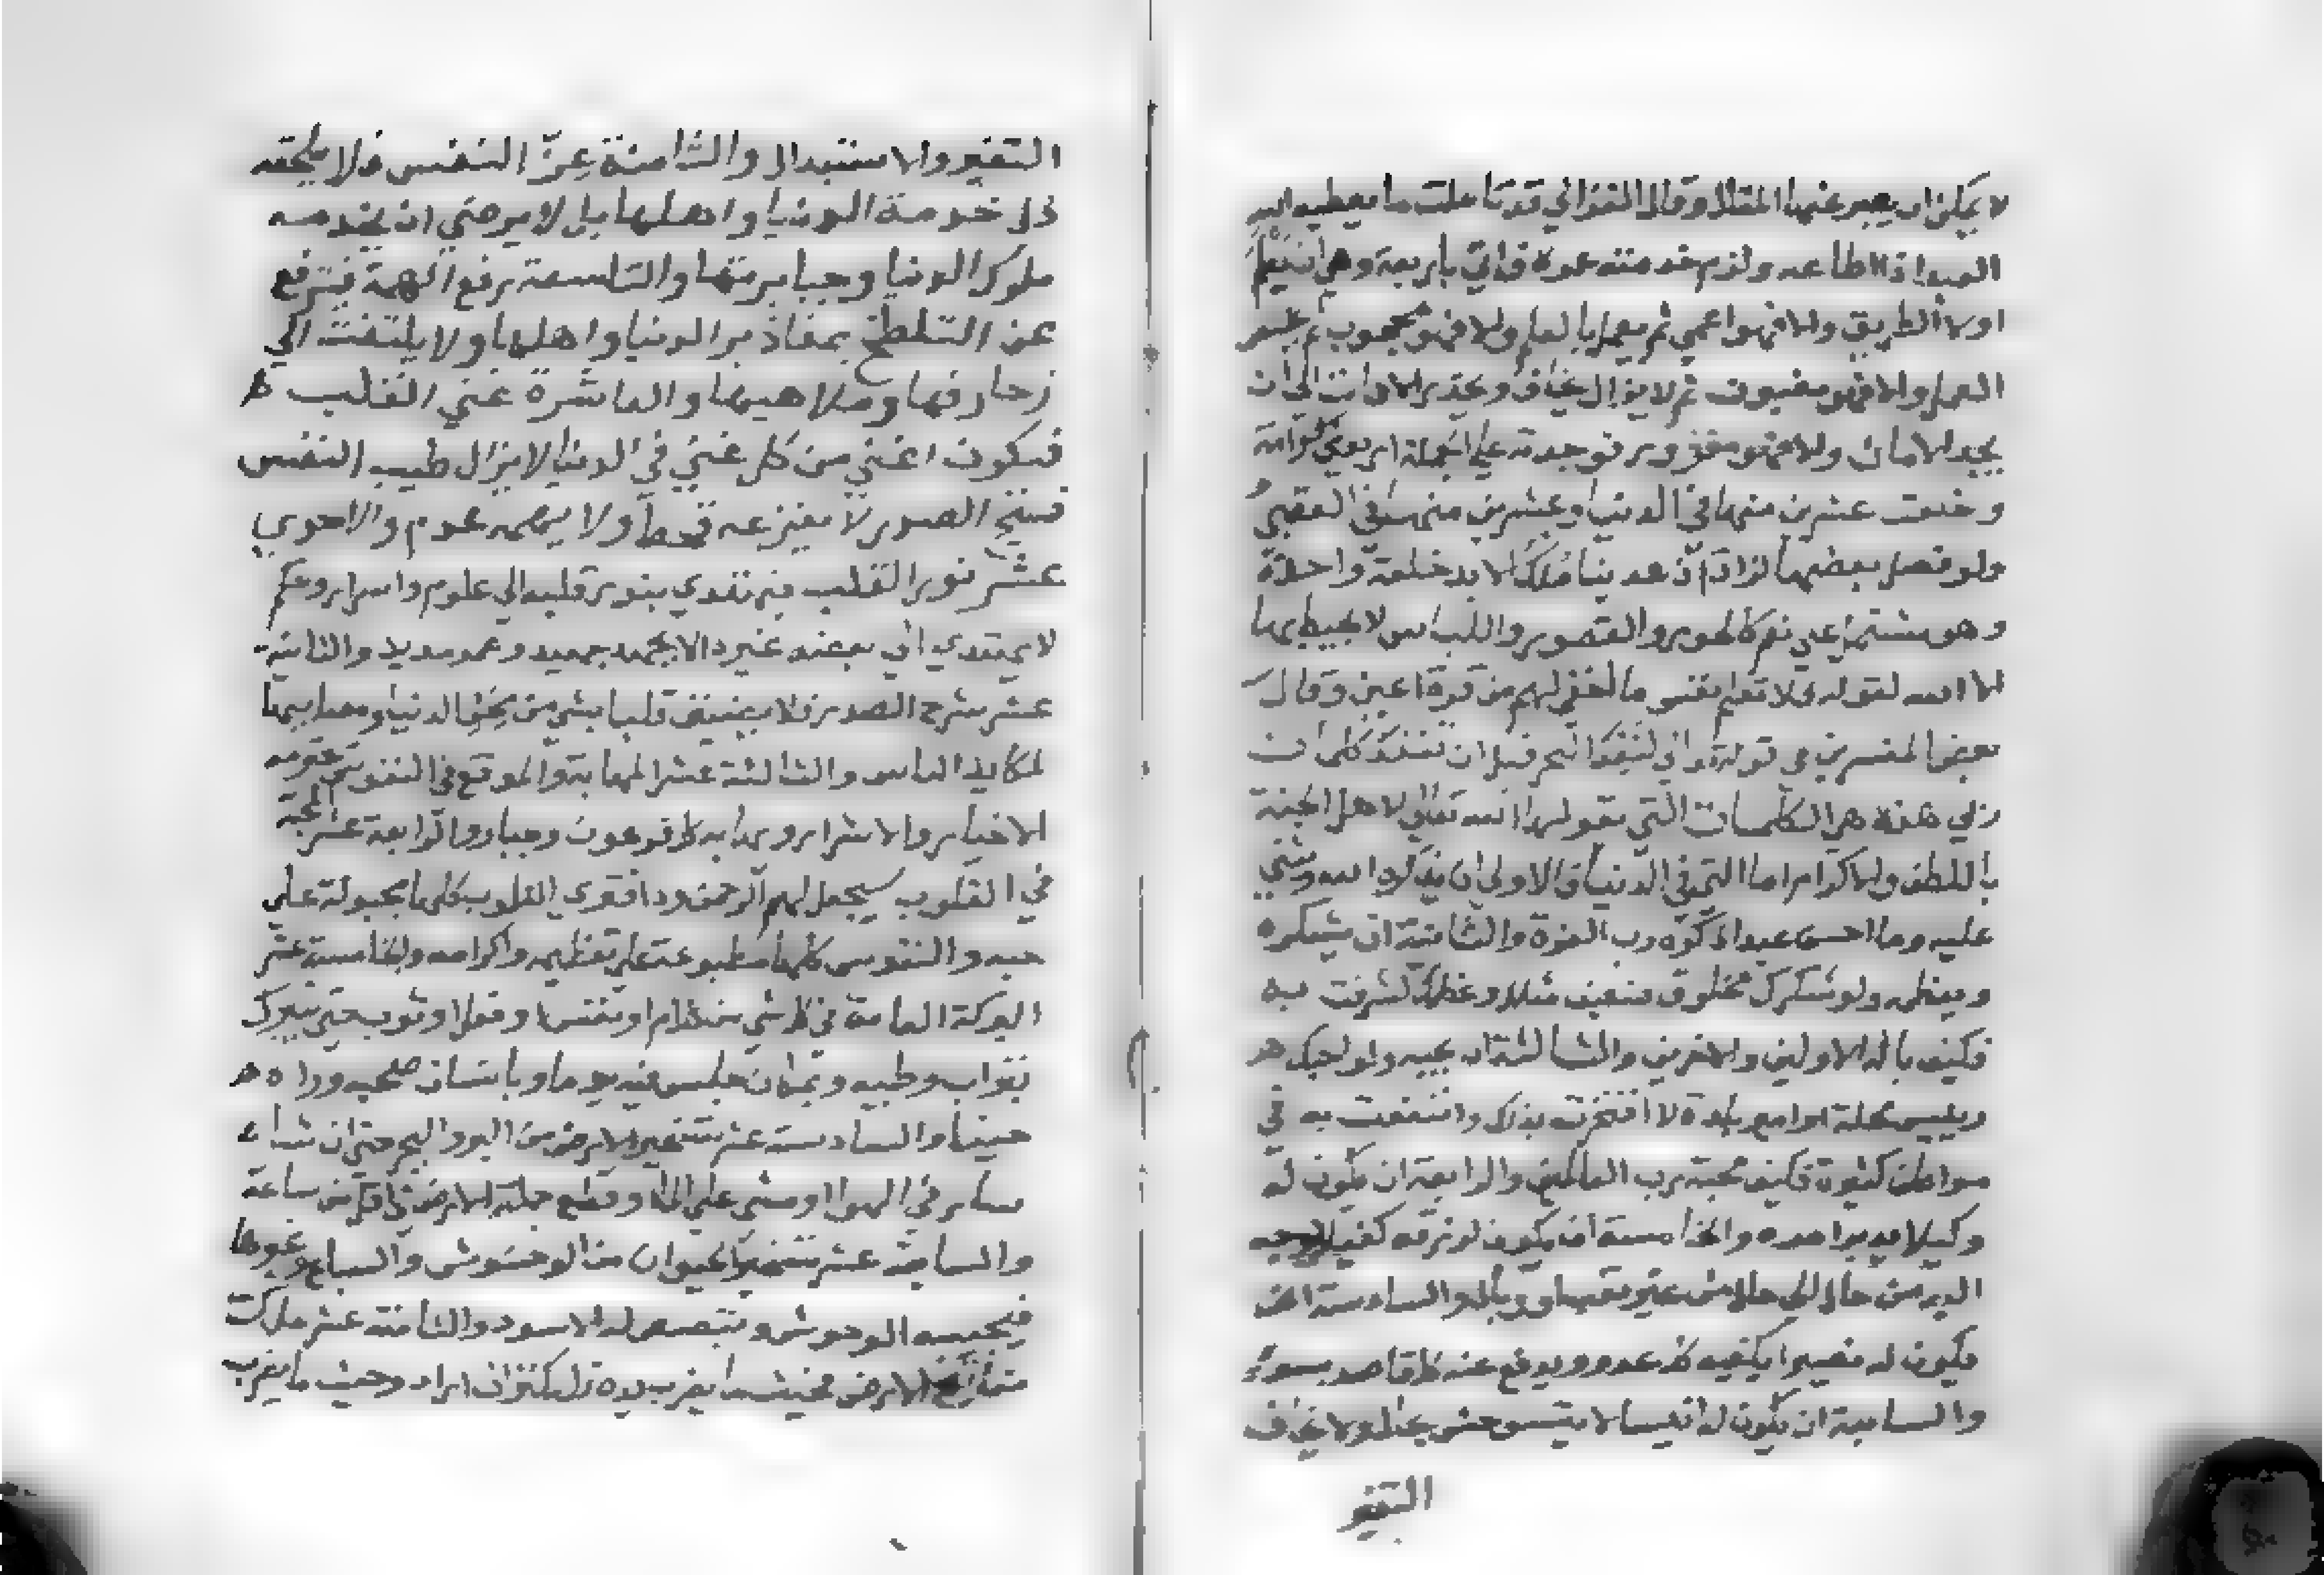 لا يمكن ان يعبر عنها المقال وقال الغزالي قد تاملت ما يعطيه الله
العبد اذا اطاعه ولزم خدمته عمره فاذا هي باربعين وهي ان يعلم
اولا الطريق والا فهو اعمى ثم يعمل بالعلم والا فهو محجوب ثم يخلص
العمل والا فهو مغبون ثم لا يزال يخاف ويحذر الافات الى ان
يجد الامان والا فهو مغرور فوجدت على الجملة اربعين كرامة
وخلعت عشرين منها في الدنيا وعشرين منها في العقبى
ولو فصل بعضها لزاد اذ عد منها ملكا لا يد خلعة واحدة
وهو مشتمل على نعم كالحور والقصور واللباس لا يحيط بها
الا الله لقوله فلا تعلم نفس ما اخفي لهم من قرة اعين وقال
بعض المفسرين في قوله تعالى لنفد البحر قبل ان تنفد كلمات
ربي هذه هي الكلمات التي يقولها الله تعالى لاهل الجنة
باللطف والاكرام اما التي في الدنيا فالاولى ان يذكره الله ويثني
عليه وما احسن عبدا ذكره رب العزة والثانية ان يشكره
ويعظمه ولو شكرك مخلوق ضعيف مثلك وعظمك لشرفت به
فكيف باله الاولين والاخرين والثالثة ان يحبه ولو احبك
رييس محلة او امير بلدة لافتخرت بذلك وانتفعت به في
مواطن كثيرة فكيف محبة رب العالمين والرابعة ان يكون له
وكيلا يدبر امره والخامسة ان يكون لرزقه كفيلا يوجه
اليه من حال الى حال من غير تعب او وبال والسادسة ان
يكون له نصيرا يكفيه كل عدو ويدفع عنه كل قاصد بسوء
والسابعة ان يكون له انيسا لا يستوحش بحال ولا يخاف
التغير
التغير والاستبدال والثامنة عز النفس فلا يلحقه
ذل خدمة الدنيا واهلها بل لا يرضى ان يخدمه
ملوك الدنيا وجبابرتها والتاسعة رفع الهمة فيترفع
عن التلطخ بمقاذير الدنيا واهلها ولا يلتفت الى
زخارفها وملاهيها والعاشرة غنى القلب
فيكون اغنى من كل غني في الدنيا لا يزال طيب النفس
فسيح الصدر لا يفزعه ولا يهمه عدم والاحدى
عشر نور القلب فيهتدي بنور قلبه الى علوم واسرار وحكم
لا يهتدي الى بعضه غيره الا بجهد جهيد وعمر مديد والثانية
عشر شرح الصدر فلا يضيق قلبا بشي من محن الدنيا ومصايبها
لمكايد الناس والثالثة عشر المهابة والموقع في النفوس تحترمه
الاخيار والاشرار ويهابه كل فرعون وجبار والرابعة عشر المحبة
في القلوب سيجعل لهم الرحمن ودا فترى القلوب كلها مجبولة على
حبه والنفوس كلها مطبوعة على تعظيمه واكرامه والخامسة عشر
البركة العامة في كل شي من كلام او نفس او فعل او ثوب حتى يتبرك
بتراب وطيه وبمكان جلس فيه يوما وبانسان صحبه وراه
حينا والسادسة عشر تسخير الارض من البر والبحر حتى ان شاء
سار في الهوا او مشى على الما او قطع جملة الارض في اقل من ساعة
والسابعة عشر تسخير الحيوان من الوحوش والسباع وغيرها
فيحبه الوحوش وتبصبص له الاسود والثامنة عشر ملك
مفاتيح الارض فحيث ما يضرب يده فله كنز ان اراد وحيث ما يضرب